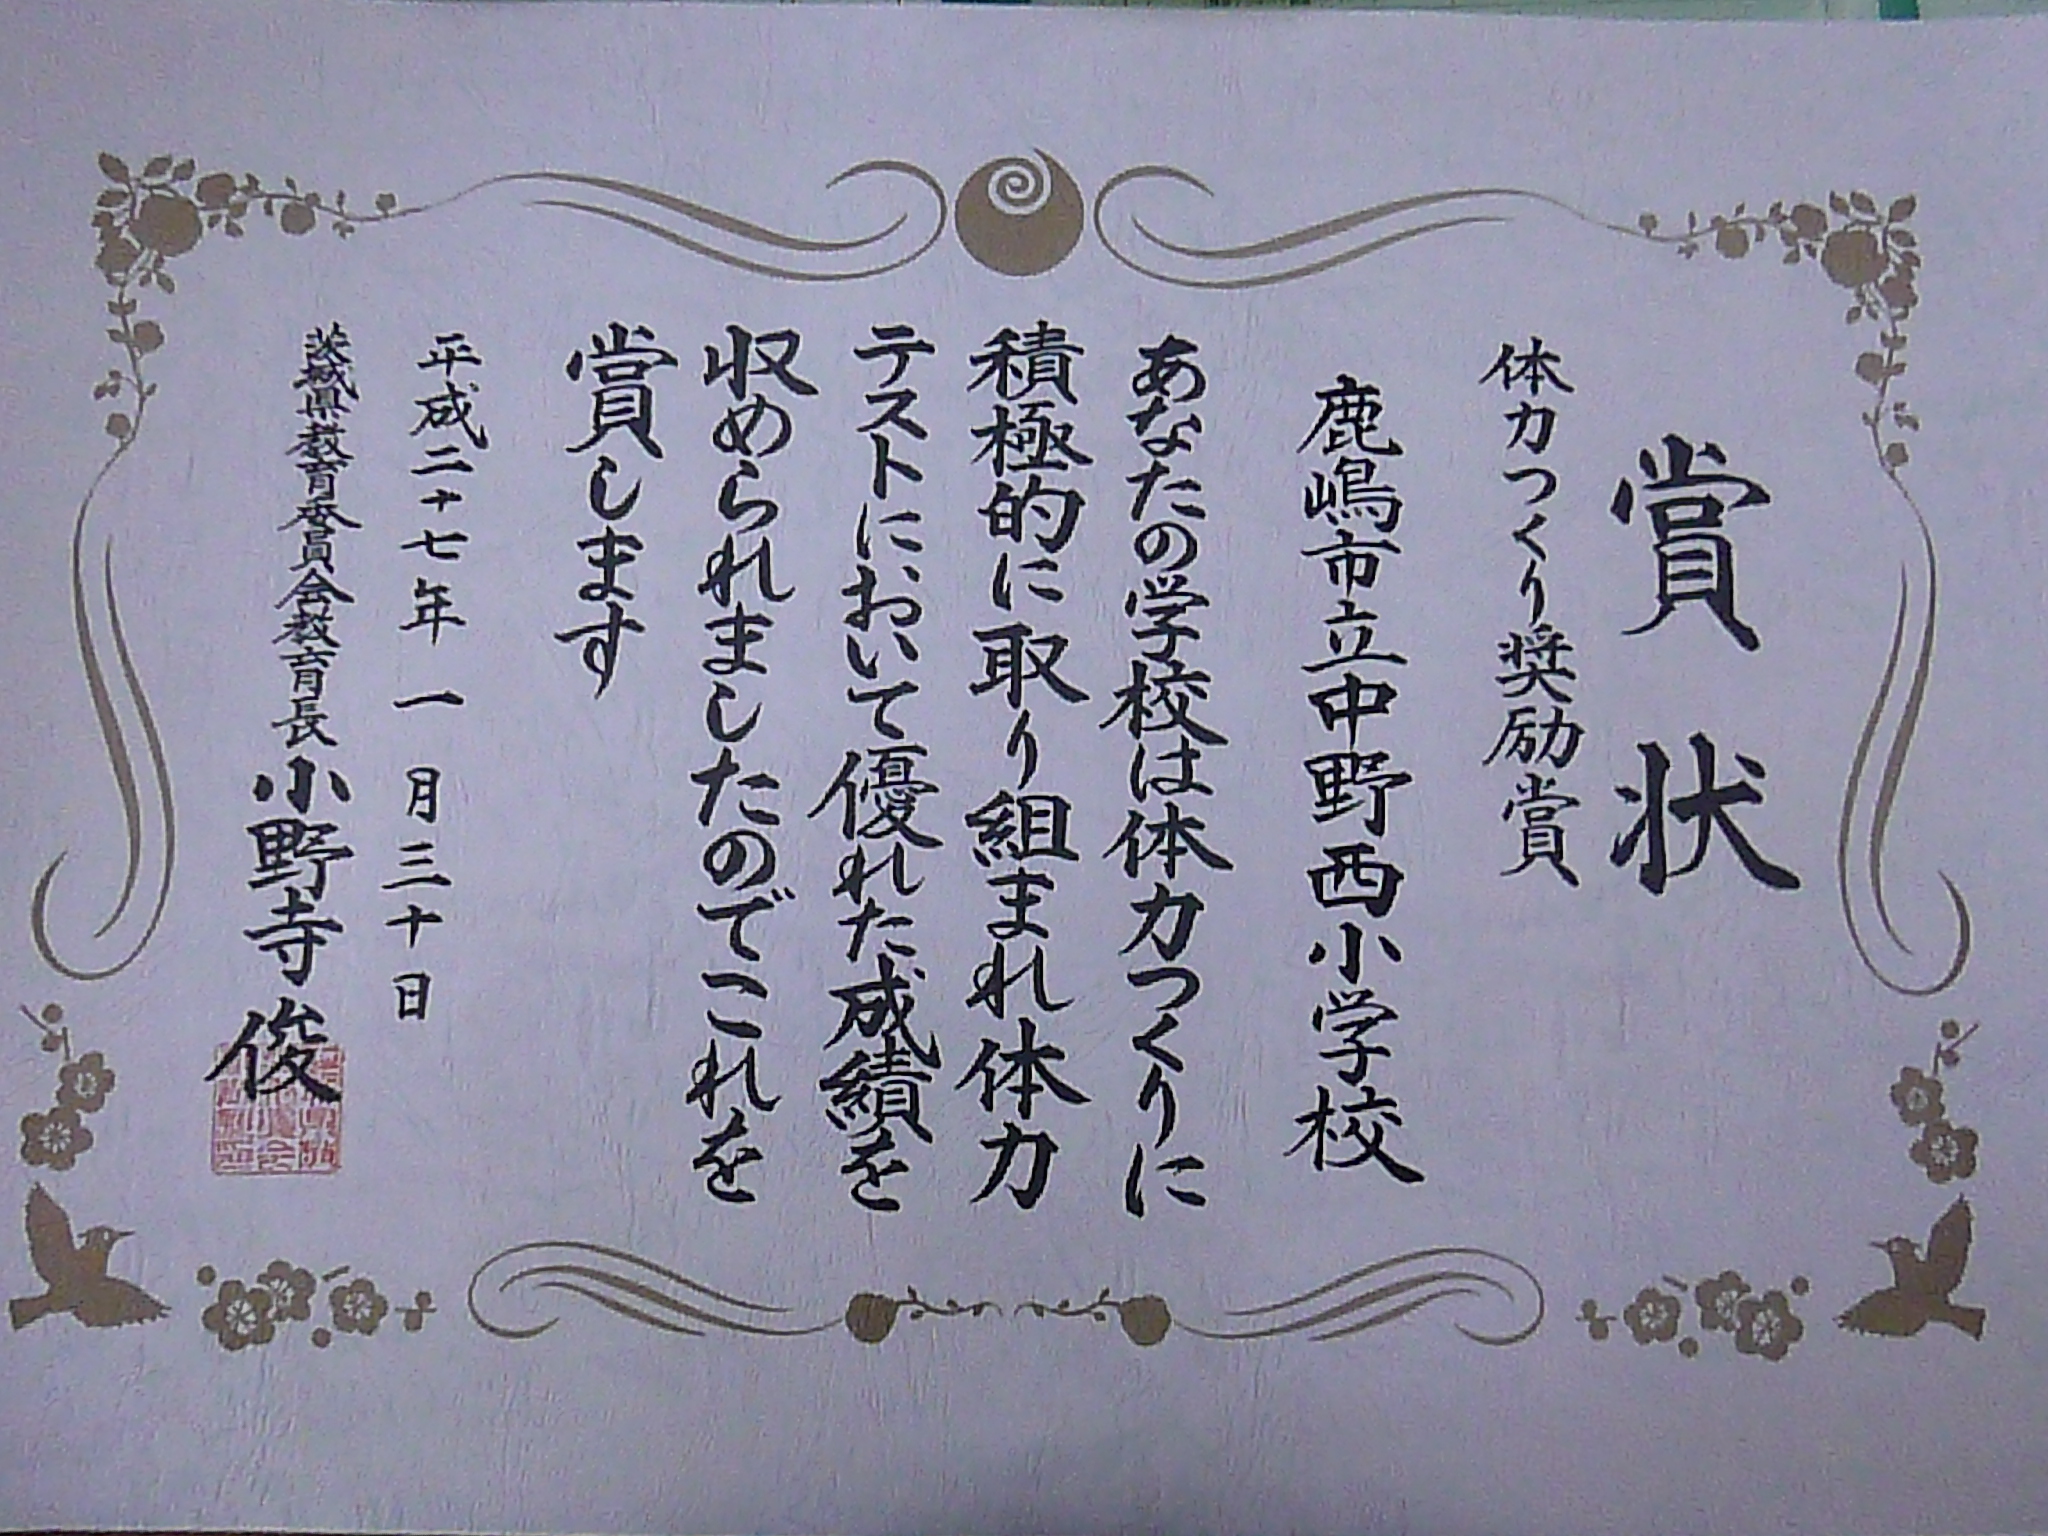 賞状
体力つくり奨励賞
鹿嶋市立中野西小学校
あなたの学校は体力つくりに
積極的に取り組まれ体力
テストにおいて優れた成績を
収められましたのでこれを
賞します
平成二十七年一月三十日
茨城県教育委員会教育長小野寺俊